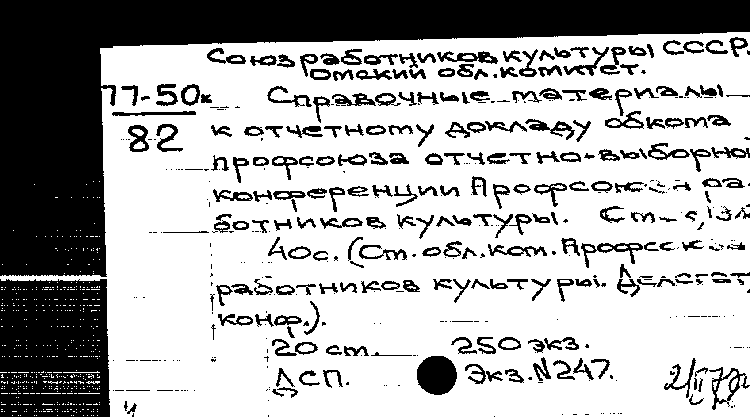 Союз работников культуры СССР.
Омский обл. комитет.
77-50к
82
Справочные материалы
к отчетному докладу обкома
профсоюза отчетно-выборной
конференции Профсоюза ра-
ботников культуры.
40с. (Ст. обл. ком. Профсоюза
работников культуры. Делегату
конф.).
20 ст. 250 экз.
ДСП. Экз. N247.